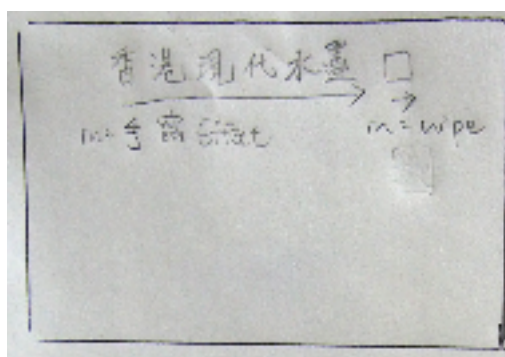 香港現代水墨 □
in=手寫 Effect in=wipe